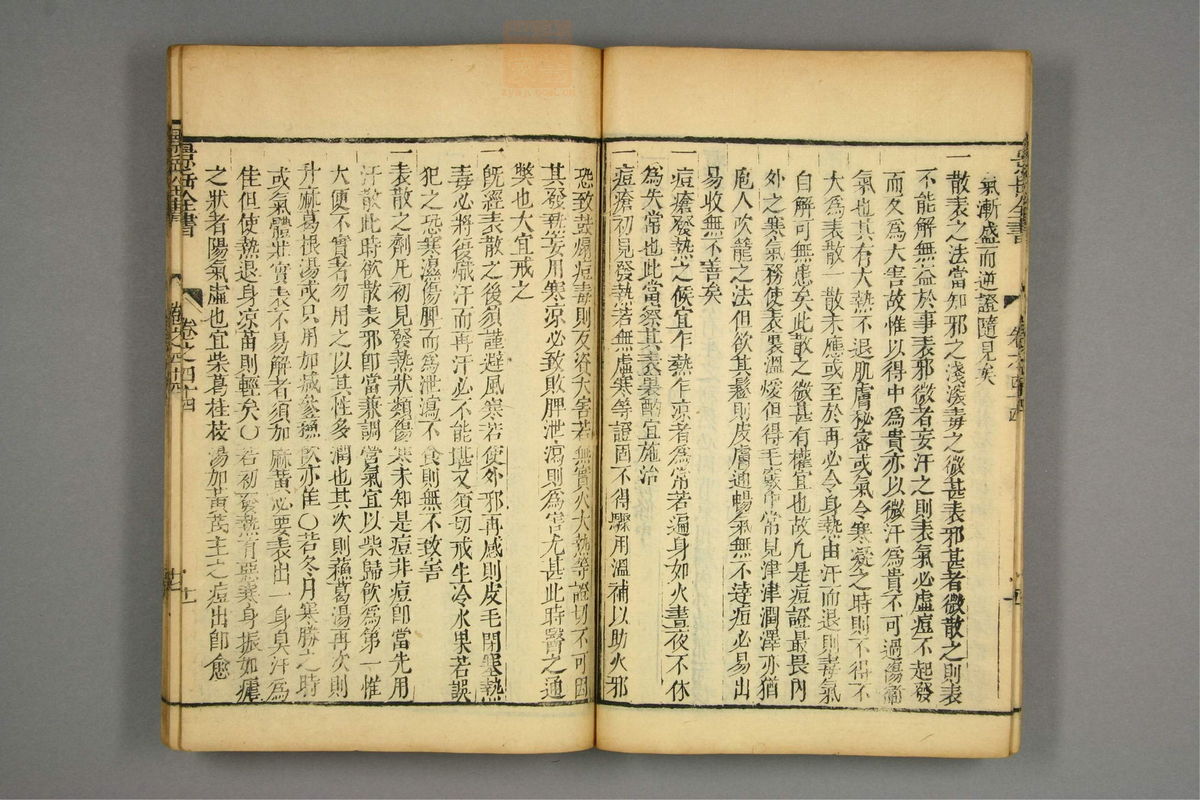 氣漸盛而逆證隨見矣
一散表之法當知邪之淺深毒之微甚表邪甚者微散之則表
不能解無益於事表邪微者妄汗之則表氣必虛痘不起發
而反為大害故惟以得中為貴亦以微汗為貴不可過傷衛
氣也其有大熱不退肌膚秘密或氣令寒凝之時則不得不
大為表散一散未應或至於再必令身熱由汗而退則毒氣
自解可無患矣此散之微甚有權宜也故凡是痘證最畏內
外之寒氣務使表裏溫煖但得毛竅中常見津津潤澤亦猶
庖人吹籠之法但欲其鬆則皮膚通暢氣無不達痘必易出
易收無不善矣
一痘瘡發熱之候宜乍熱乍涼者為常若遍身如火晝夜不休
為失常也此當察其表裏酌宜施治
一痘瘡初見發熱若無虛寒等證固不得驟用溫補以助火邪
恐致鼓煽痘毒則反谷大害若無實火大熱等證切不可因
其發熱妄用寒涼必致敗脾泄瀉則為害尤甚此時醫之通
弊也大宜戒之
一既經表散之後須謹避風寒若使外邪再感則皮毛閉塞熱
毒必將復熾汗而再汗必不能堪又須切戒生冷水果若誤
犯之恐寒濕傷脾而為泄瀉不食則無不致害
一表散之劑凡初見發熱狀類傷寒未知是痘非痘即當先用
汗散此時欲散表邪即當兼調營氣宜以柴歸飲為第一惟
大便不實者勿用之以其性多潤也其次則蘇葛湯再次則
升麻葛根湯或只用加減參蘇飲亦佳〇若冬月寒勝之時
或氣體壯實表不易解者須加麻黃必要表出一身臭汗為
佳但使熱退身涼苗則輕矣〇若初發熱有惡寒身振如瘧
之狀者陽氣虛也宜柴葛桂枝湯加黃芪主之痘出即愈
景岳全書
卷之四十四